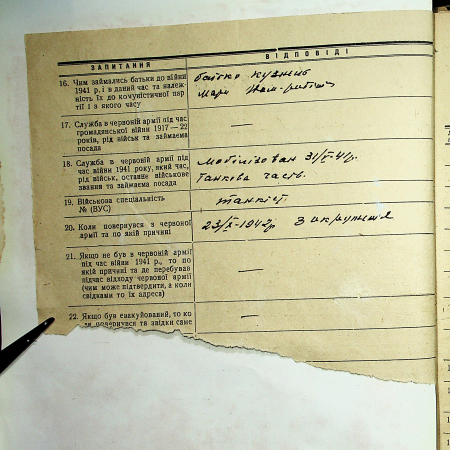 ЗАПИТАННЯ ВІДПОВІДІ
16. Чим займались батьки до війни
1941 р. і в даний час та належ-
ність їх до комуністичної пар
тії і з якого часу
батько кузнець
17. Служба в червоній армії під час
громадянської війни 1917—22
років, рід військ та займаема
посада
—
18. Служба в червоній армії під
час війни 1941 року, який час,
рід військ, останнє військове
звання та займаема посада
мобілізован
танкова часть.
19. Військова спеціальність
№ (ВУС)
танкіст
20. Коли повернувся з червоної
армії та по якій причині
з окруженія
21. Якщо не був в червоній армії
під час війни 1941 р., то по
якій причині та де перебував
підчас відходу червоної армії
(чим може підтвердити, а коли
свідками то їх адреса)
—
22. Якщо був евакуйований, то ко
ли повернувся та звідки саме
—